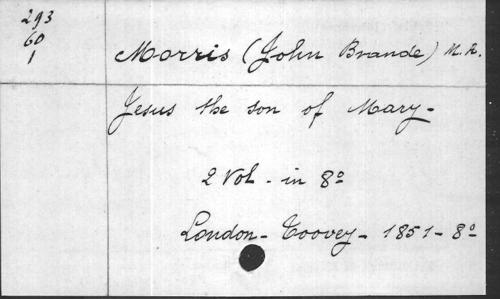 293
60
1
Morris (John Brande) M. A.
Jesus the son of Mary -
2 Vol. in 8º
London - Toovey - 1851 - 8º